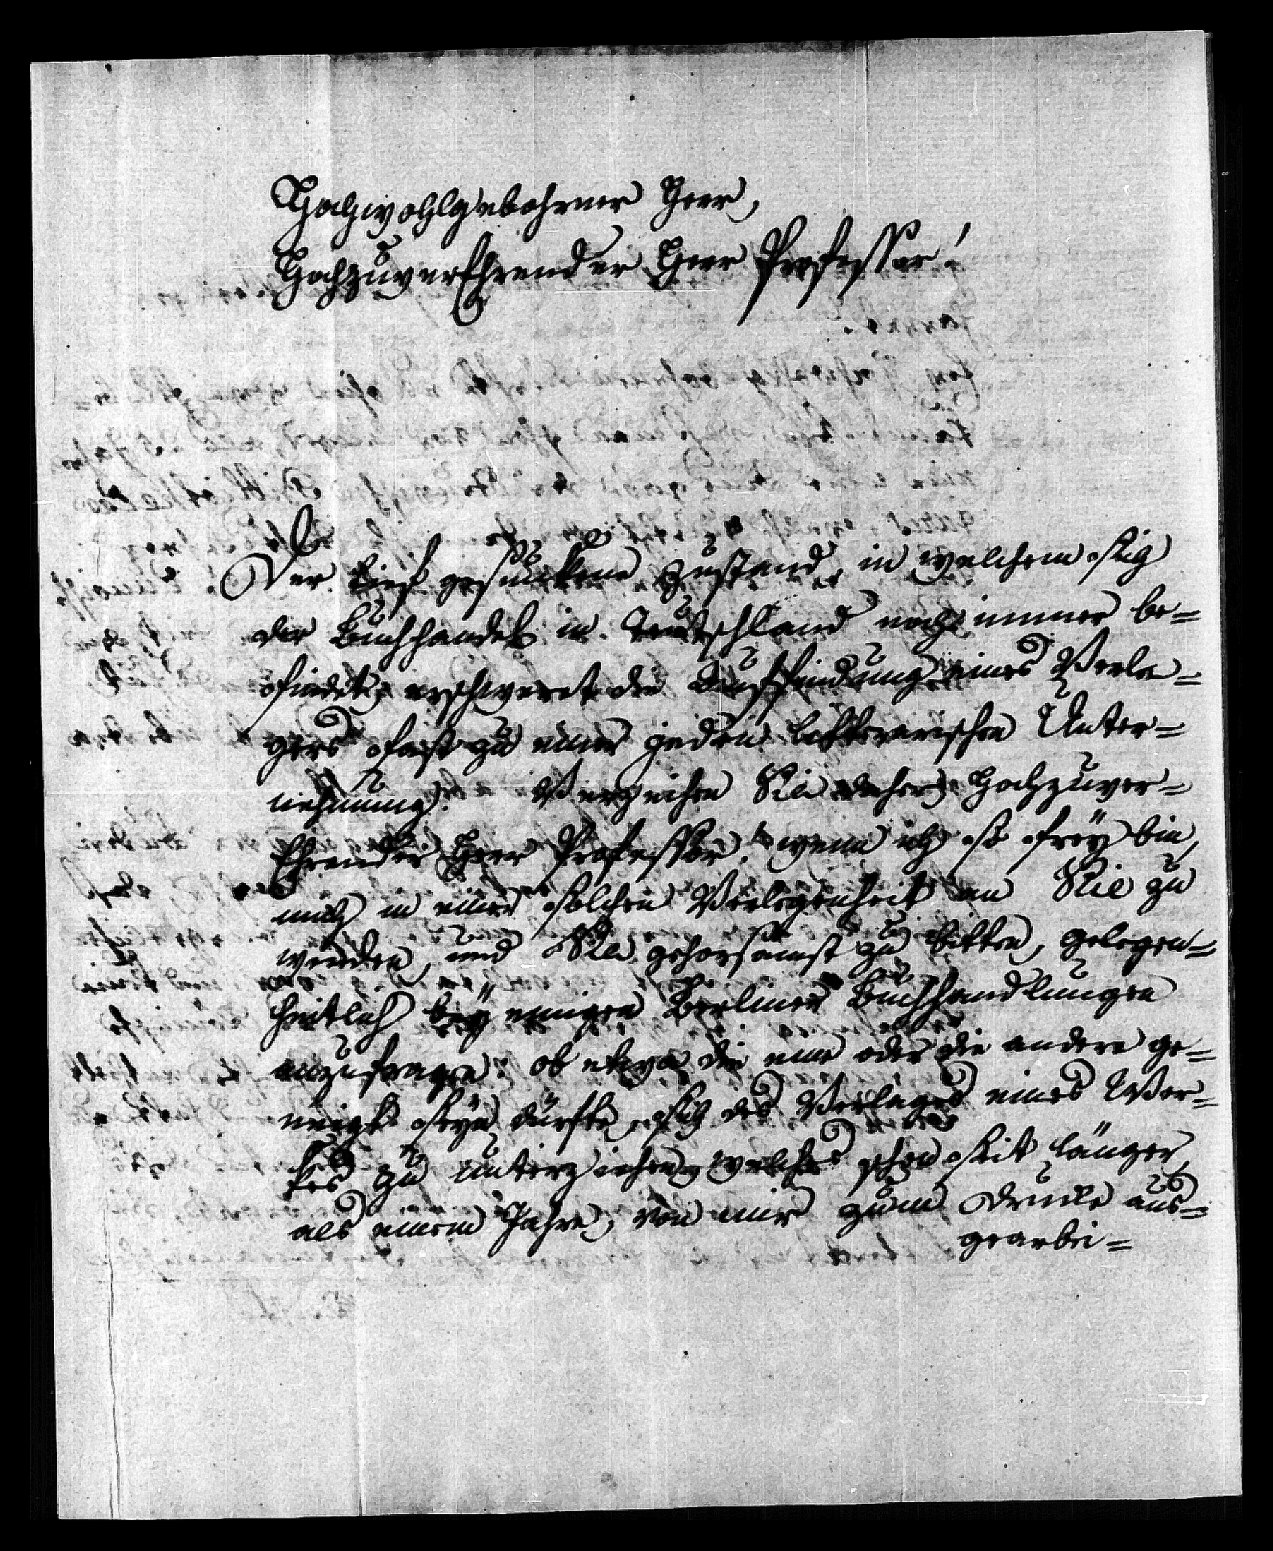 Hochwohlgebohrner Herr,
Hochzuverehrender Herr Professor!
Der tief gesunkene Zustand, in welchem sich
der Buchhandel in Teutschland noch immer be=
findet, erschweret die Auffindung eines Verle=
gers fast zu einer jeden litterarischen Unter=
nehmung. Verzeihen Sie daher, Hochzuver=
ehrender Herr Professor, wenn ich so frey bin,
mich in einer solchen Verlegenheit an Sie zu
wenden, und Sie gehorsamst zu bitten, gelegen=
heitlich bey einigen Berliner Buchhandlungen
anzufragen: ob etwa die eine oder die andere ge=
neigt seyn dürfte, sich des Verlages eines Wer=
kes zu unterziehen, welches schon seit länger
als einem Jahre, von mir zum Drucke aus=
gearbei=